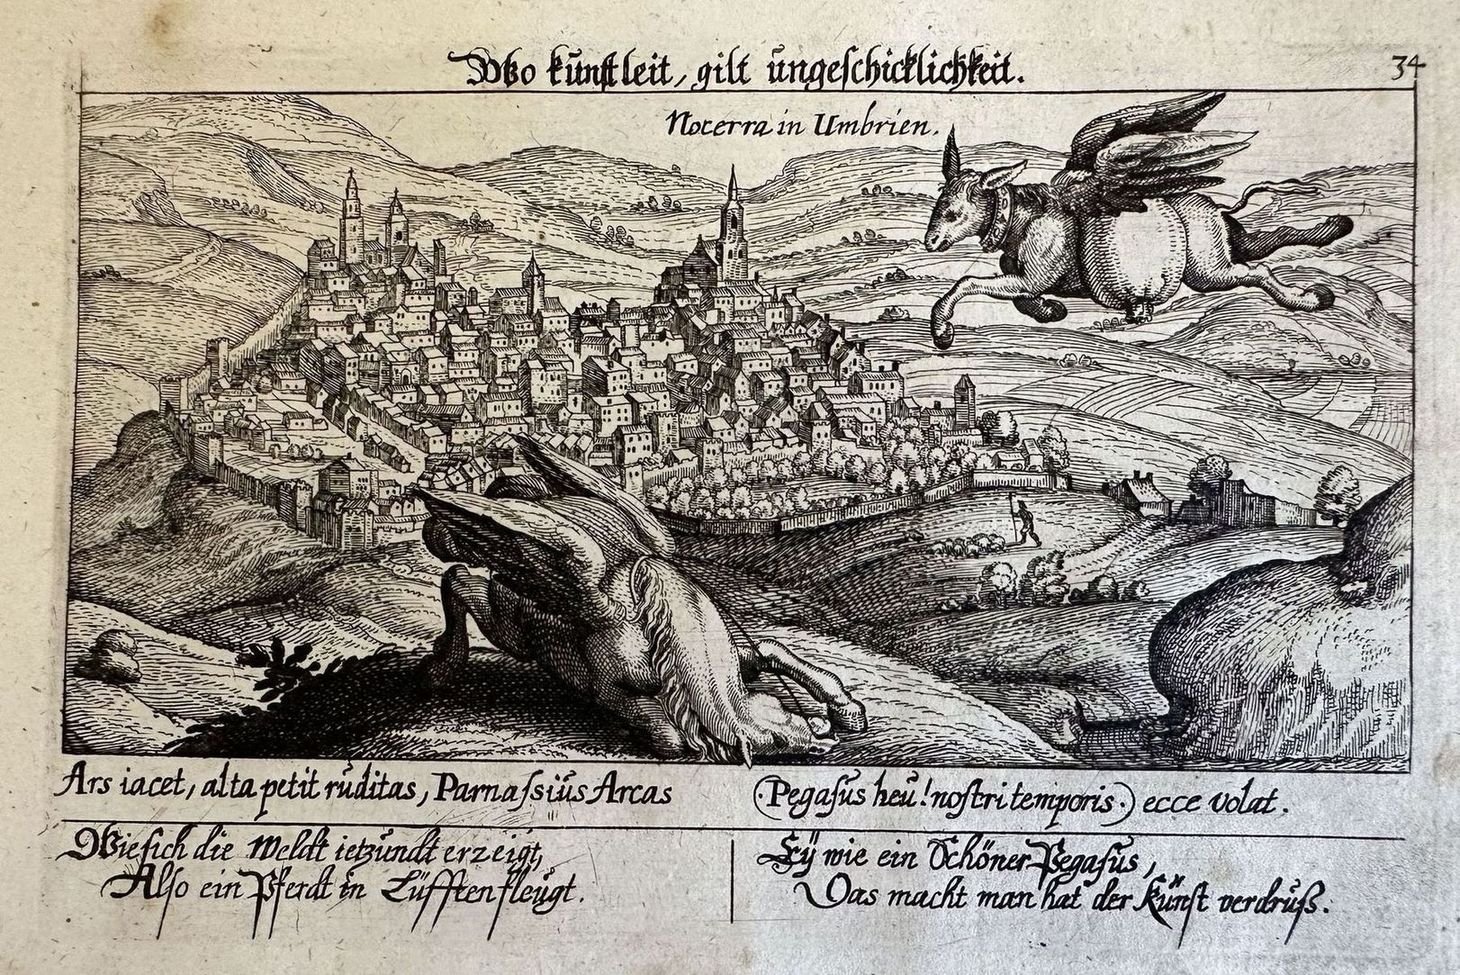 Wo kunst leit, gilt ungeschicklichkeit.
34
Nocerra in Umbrien.
Ars iacet, alta petit ruditas, Parnaſsius Arcas
(Pegaſus heu! noſtri temporis.) ecce volat.
Wie ſich die Weldt ietzundt erzeigt,
Alſo ein Pferdt in Lüfften fleugt.
Eÿ wie ein Schöner Pegaſus,
Das macht man hat der Kunſt verdruſs.